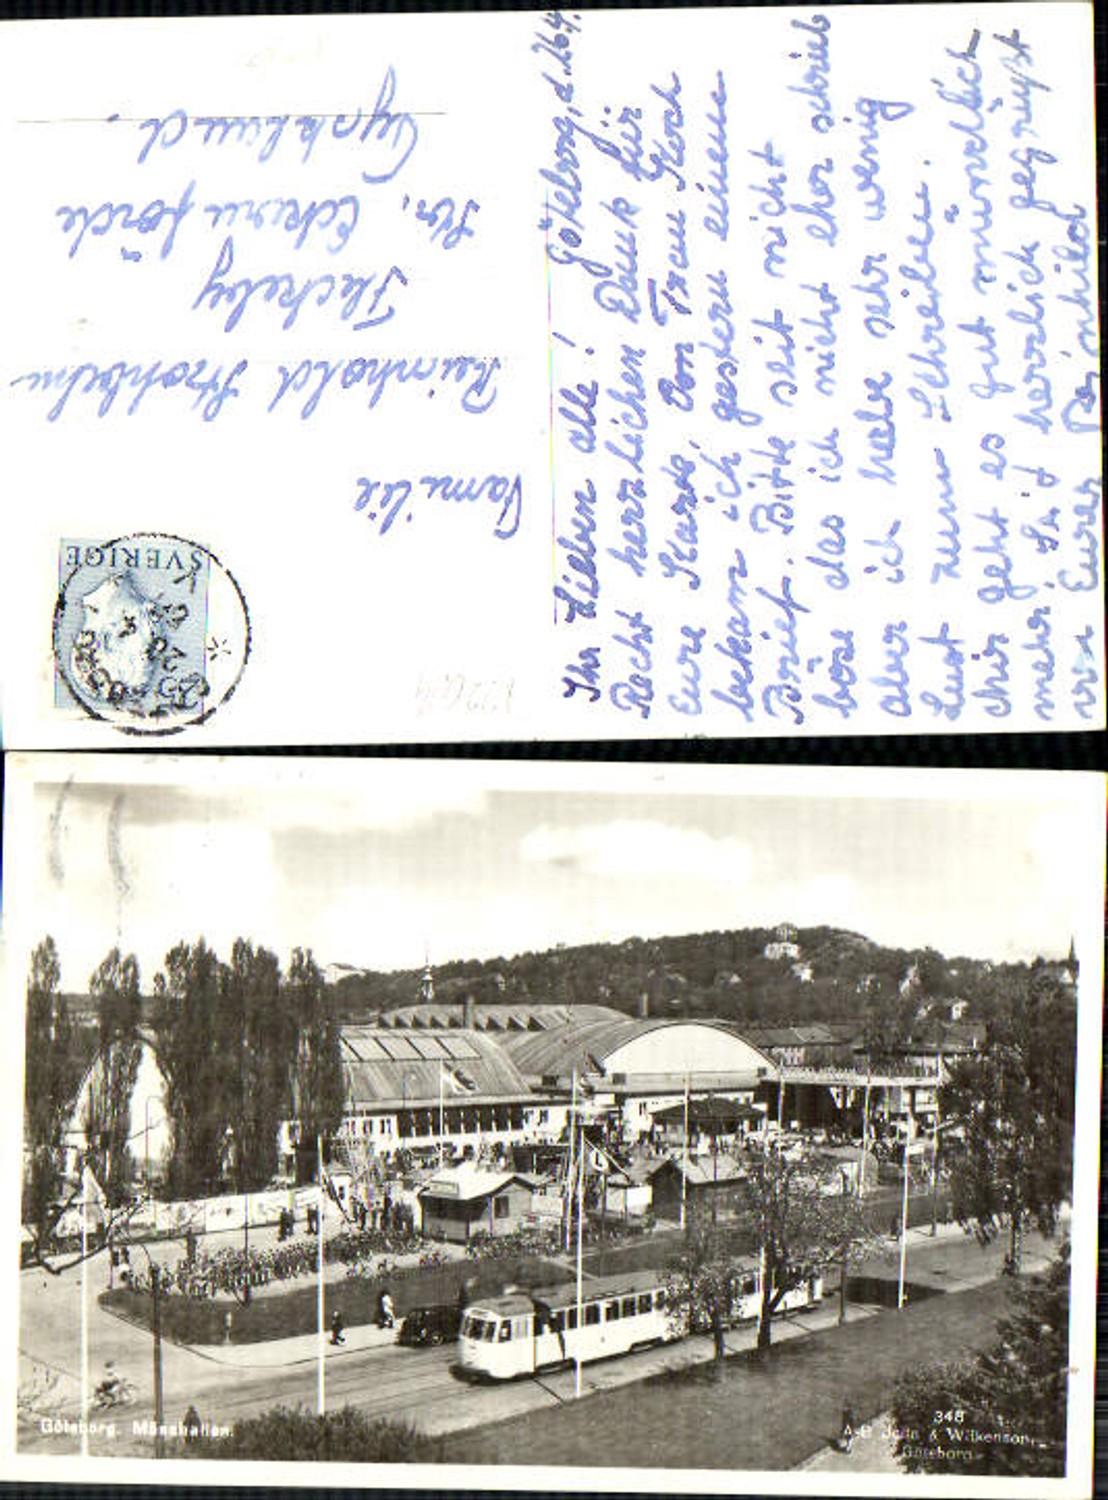 Ihr Lieben alle! Göteborg, d. 26.4.
Recht herzlichen Dank für
Eure Karte, von Frau Koch
bekam ich gestern einen
Brief. Bitte seit nicht
böse das ich nicht eher schrieb
aber ich habe sehr wenig
Lust zum Schreiben.
Mir geht es gut mündlich
mehr. Seid herzlich gegrüßt
von Eurer
Familie
Reinhold
Fleckeby
Kr. Eckernförde
Tyskland.
SVERIGE
Göteborg. Mässhallen.
348
A-B Josn & Wilkenson,
Göteborg